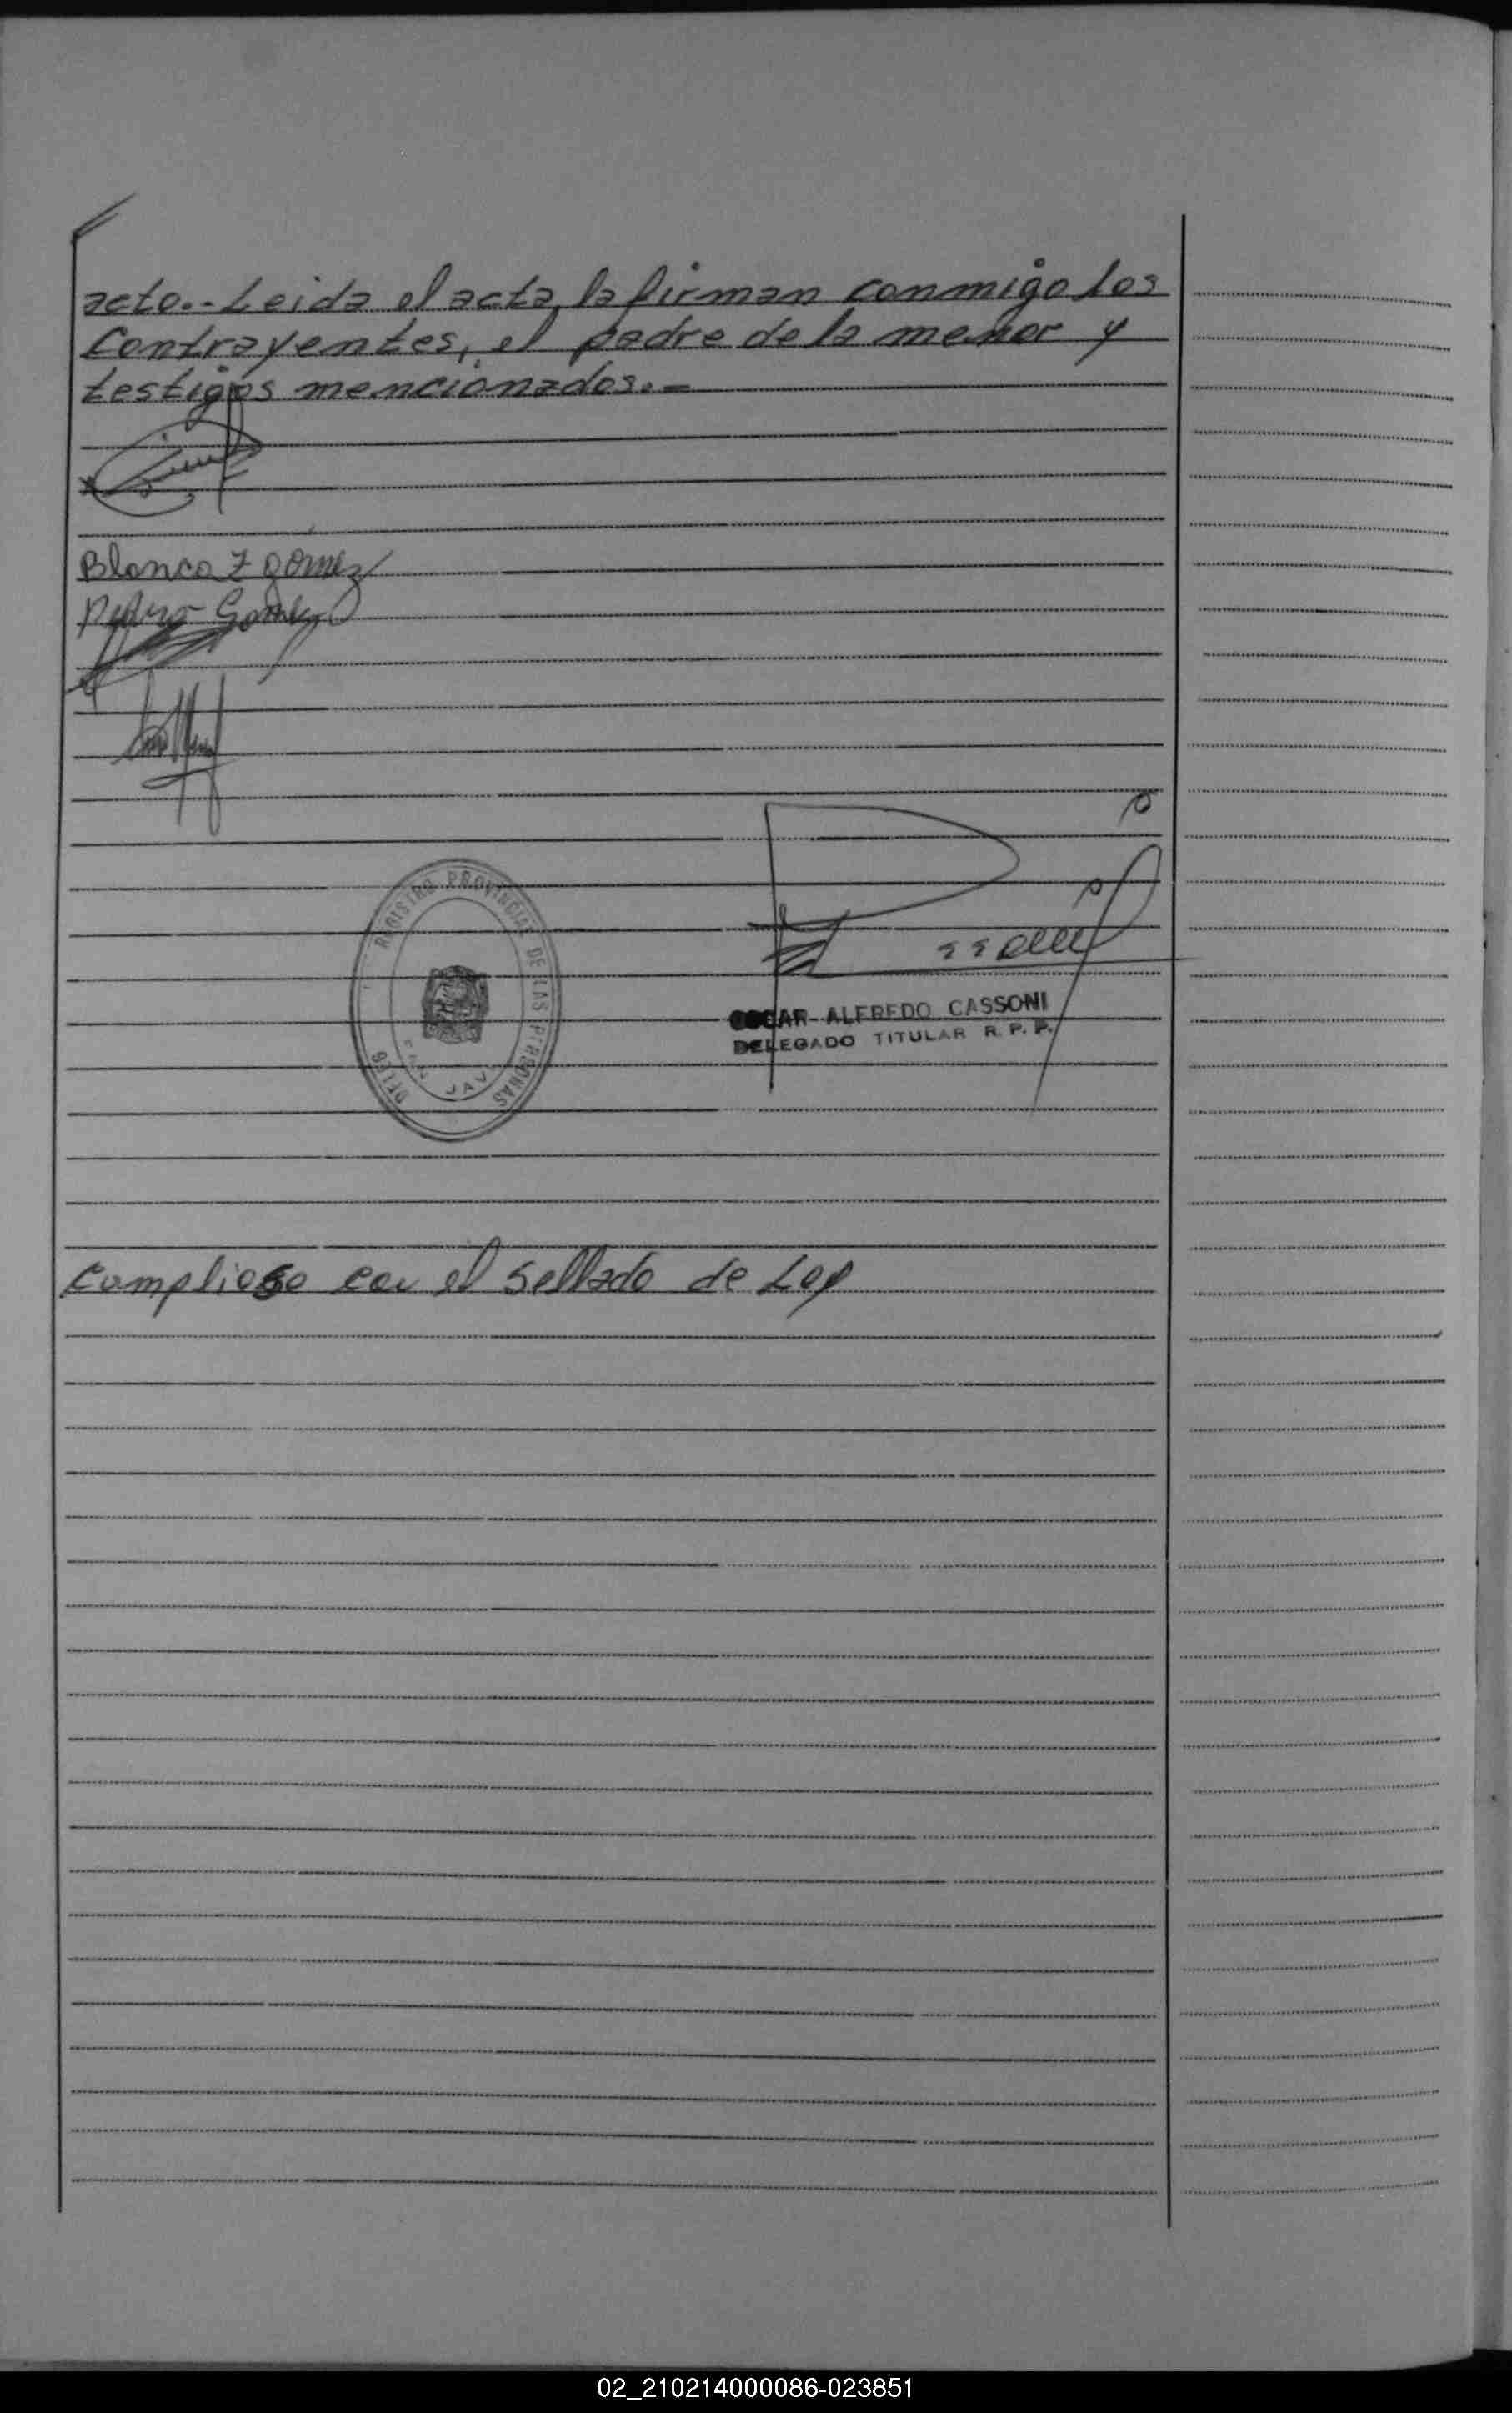 acto.- Leida el acta, la firman conmigo los
Contrayentes, el padre de la menor y
testigos mencionados.=
Blanca Z Gómez
Pedro Gomez
REGISTRO PROVINCIAL DE LAS PERSONAS
DELEG
SAN JAVI
OSCAR ALFREDO CASSONI
DELEGADO TITULAR R. P. P.
Cumpliose con el Sellado de Ley
02_210214000086-023851